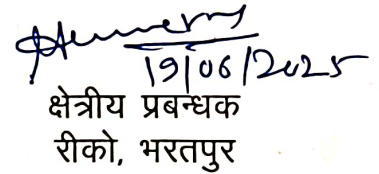 19/06/2025
क्षेत्रीय प्रबन्धक
रीको, भरतपुर